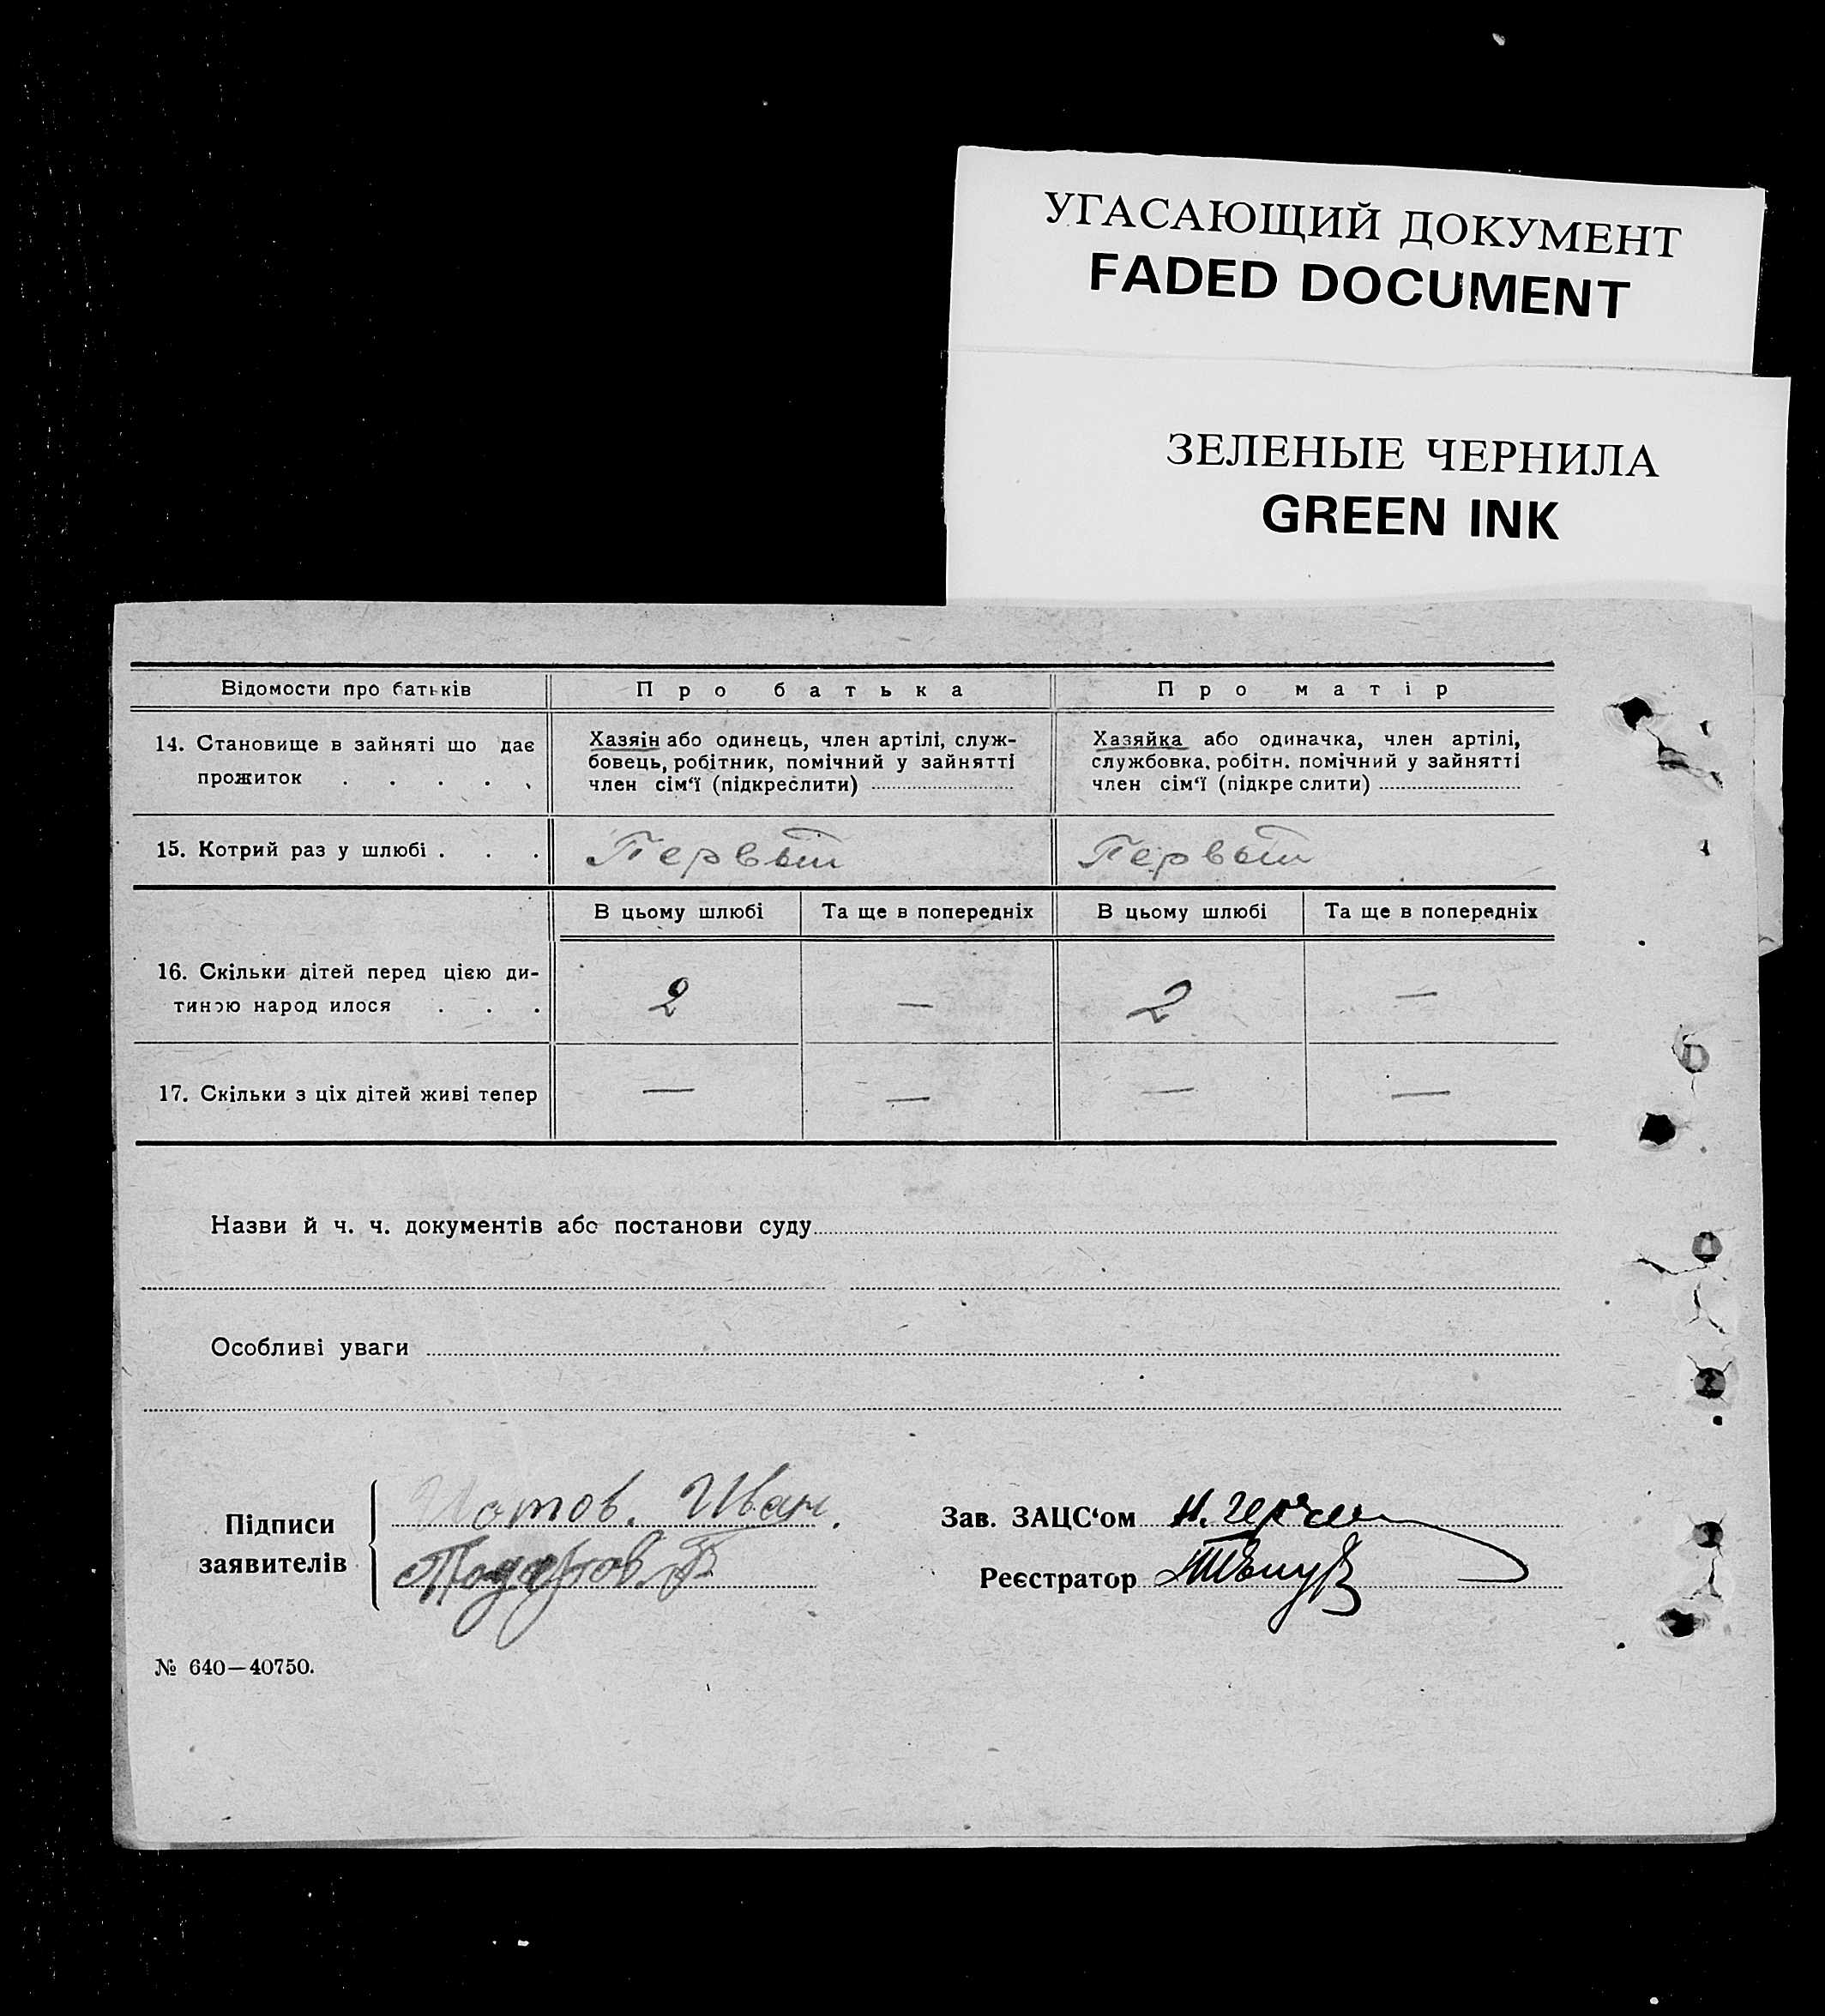 УГАСАЮЩИЙ ДОКУМЕНТ
FADED DOCUMENT
ЗЕЛЕНЫЕ ЧЕРНИЛА
GREEN INK
Відомости про батьків
Про батька
Про матір
14. Становище в зайняті що дає
прожиток . . . . .
Хазяін або одинець, член артілі, служ-
бовець, робітник, помічний у зайнятті
член сім‘ї (підкреслити)
Хазяйка або одиначка, член артілі,
службовка. робітн. помічний у зайнятті
член сім‘ї (підкре слити)
15. Котрий раз у шлюбі . . .
Первый
Первый
В цьому шлюбі
Та ще в попередніх
В цьому шлюбі
Та ще в попередніх
16. Скільки дітей перед цією ди-
тиною народ илося . . .
2
—
2
—
17. Скільки з ціх дітей живі тепер
—
—
—
—
Назви й ч. ч. документів або постанови суду
Особливі уваги
Підписи
заявителів
Иван.
Зав. ЗАЦС‘ом
Реєстратор
№ 640—40750.